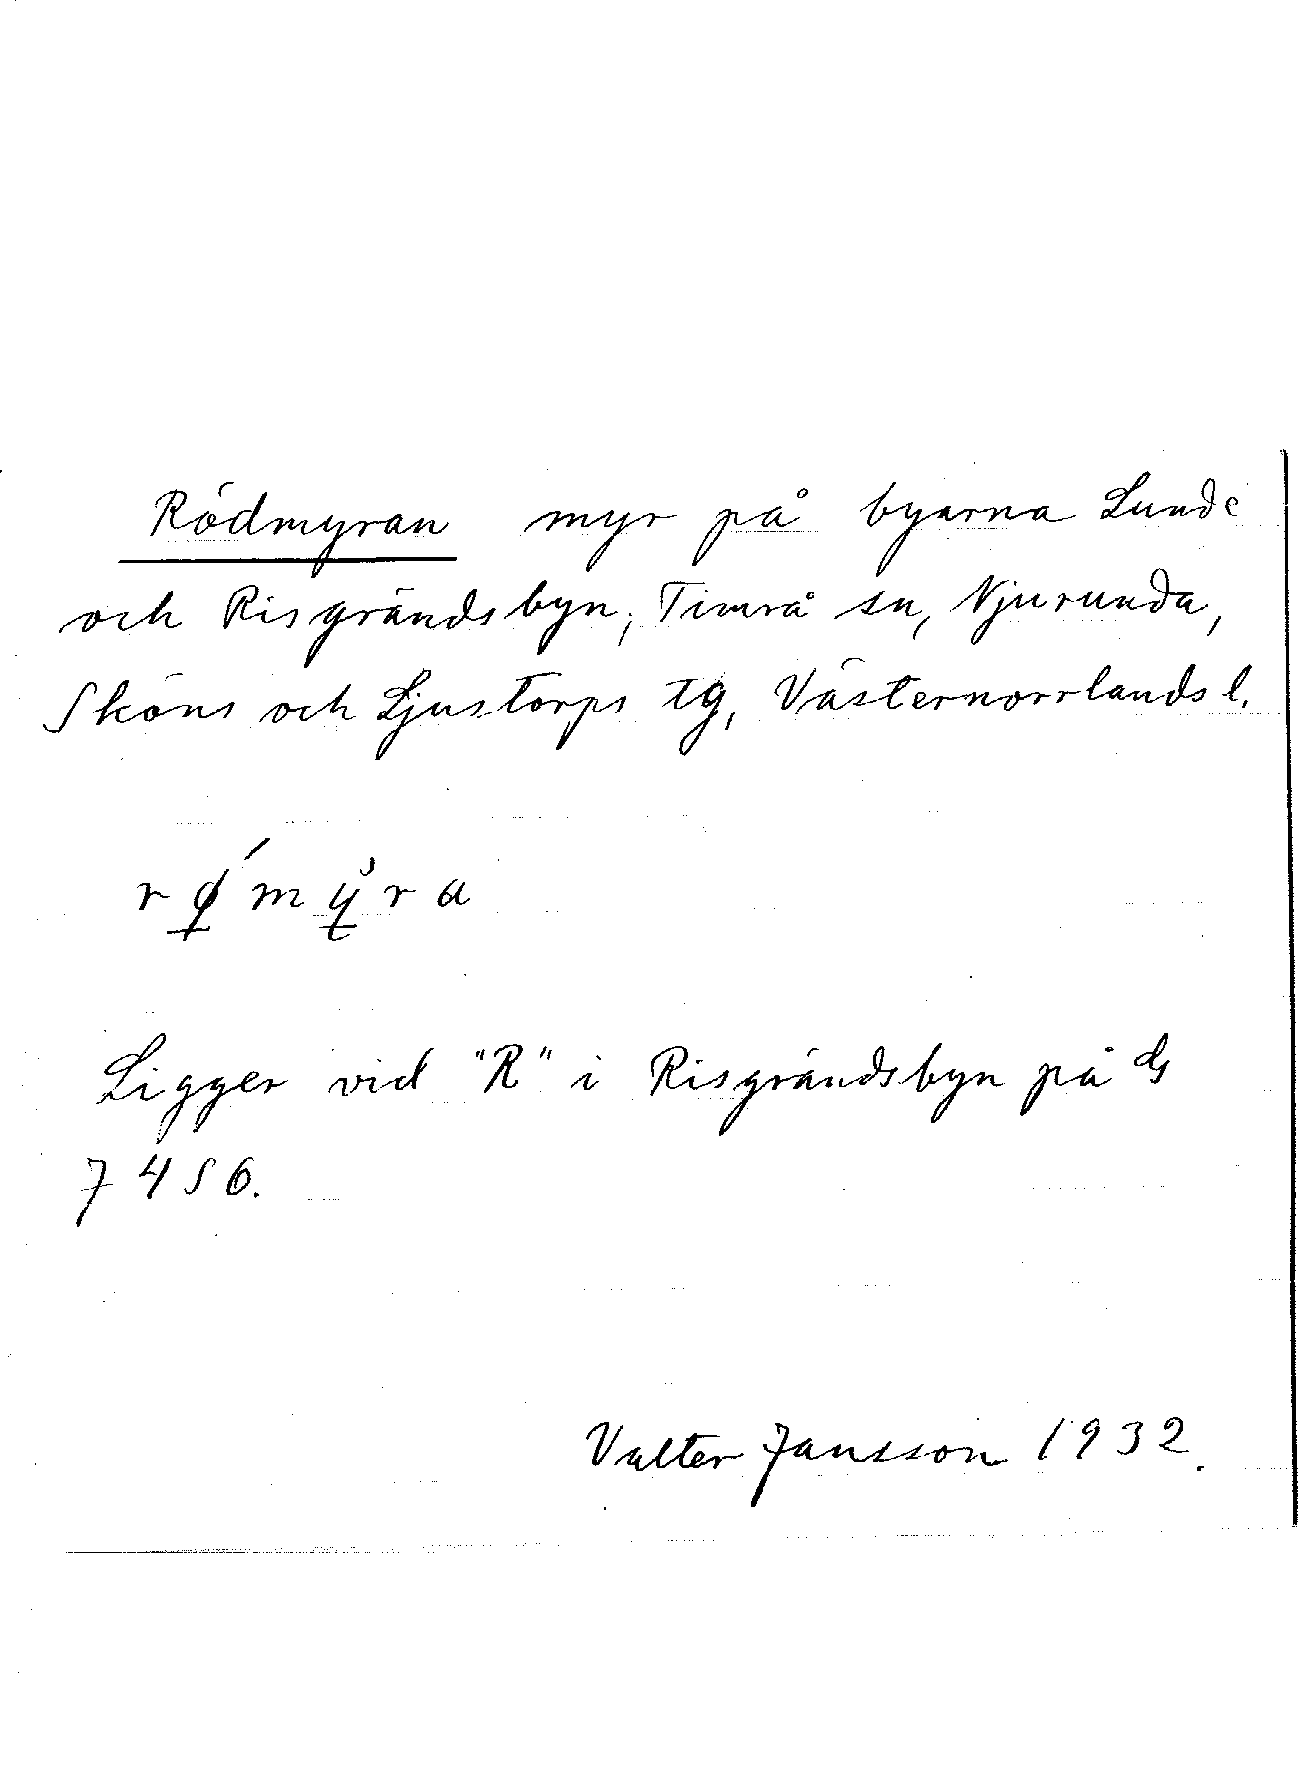 Rödmyran myr på byarna Lunde
och Risgrändsbyn, Timrå sn, Njurunda,
Sköns och Ljustorps tg, Västernorrlands l.
rǿ̱mẙ̱ra
Ligger vid "R" i Risgrändsbyn på
7456.
Valter Jansson 1932.